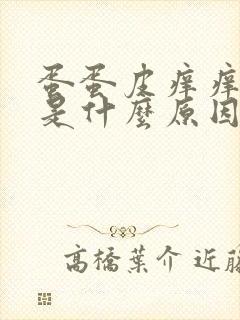 蛋蛋皮痒痒
是什麼原因
高橋葉介 近藤